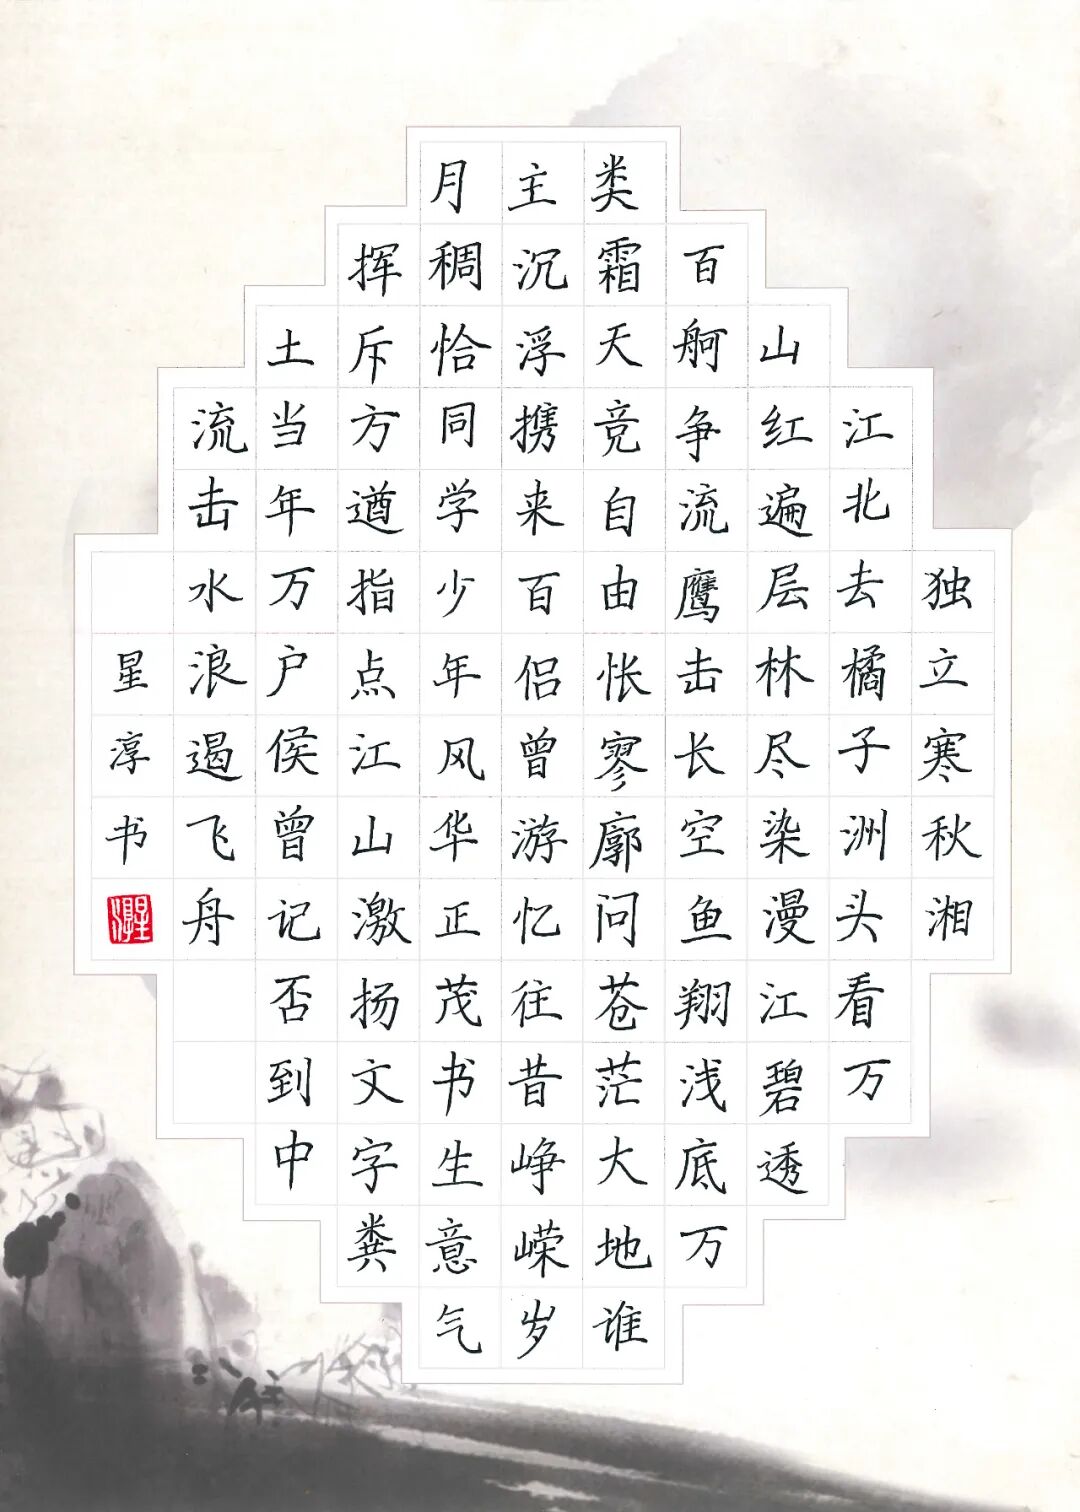 独立寒秋湘
江北去橘子洲头看万
山红遍层林尽染漫江碧透
百舸争流鹰击长空鱼翔浅底万
类霜天竞自由怅寥廓问苍茫大地谁
主沉浮携来百侣曾游忆往昔峥嵘岁
月稠恰同学少年风华正茂书生意气
挥斥方遒指点江山激扬文字粪
土当年万户侯曾记否到中
流击水浪遏飞舟
星淳书
星淳